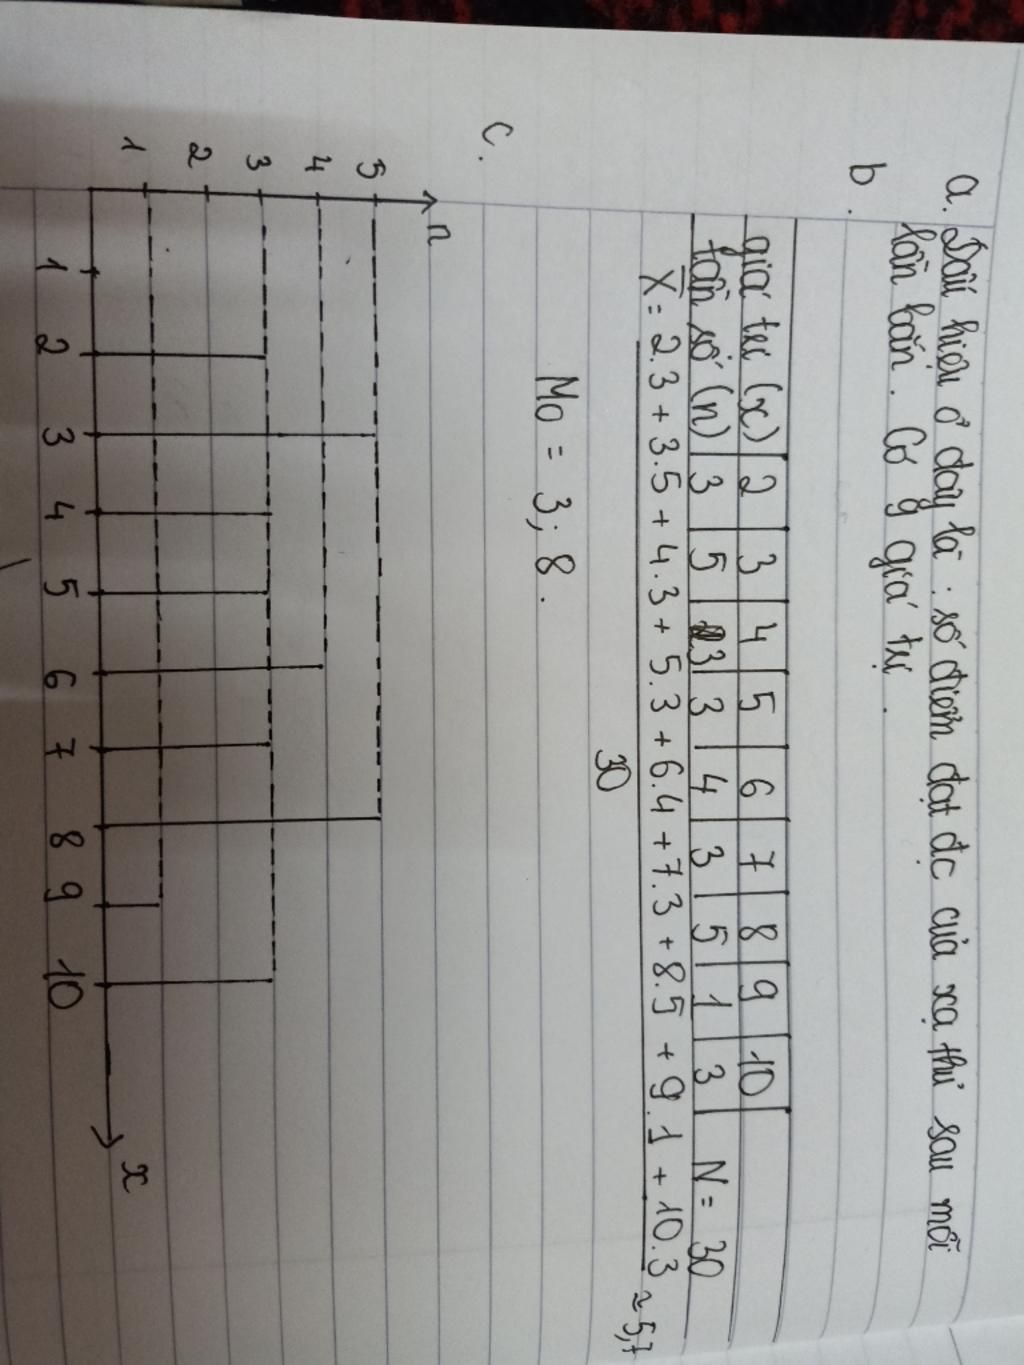 a. Dấu hiệu ở đây là : số điểm đạt đc của xạ thủ sau mỗi
lần bắn. Có 9 giá trị.
b.
giá trị (x) 2 3 4 5 6 7 8 9 10
tần số (n) 3 5 3 3 4 3 5 1 3 N = 30
X̄ = 2.3 + 3.5 + 4.3 + 5.3 + 6.4 + 7.3 + 8.5 + 9.1 + 10.3 ≈ 5,7
30
Mo = 3; 8.
c.
n
5
4
3
2
1
1 2 3 4 5 6 7 8 9 10 x